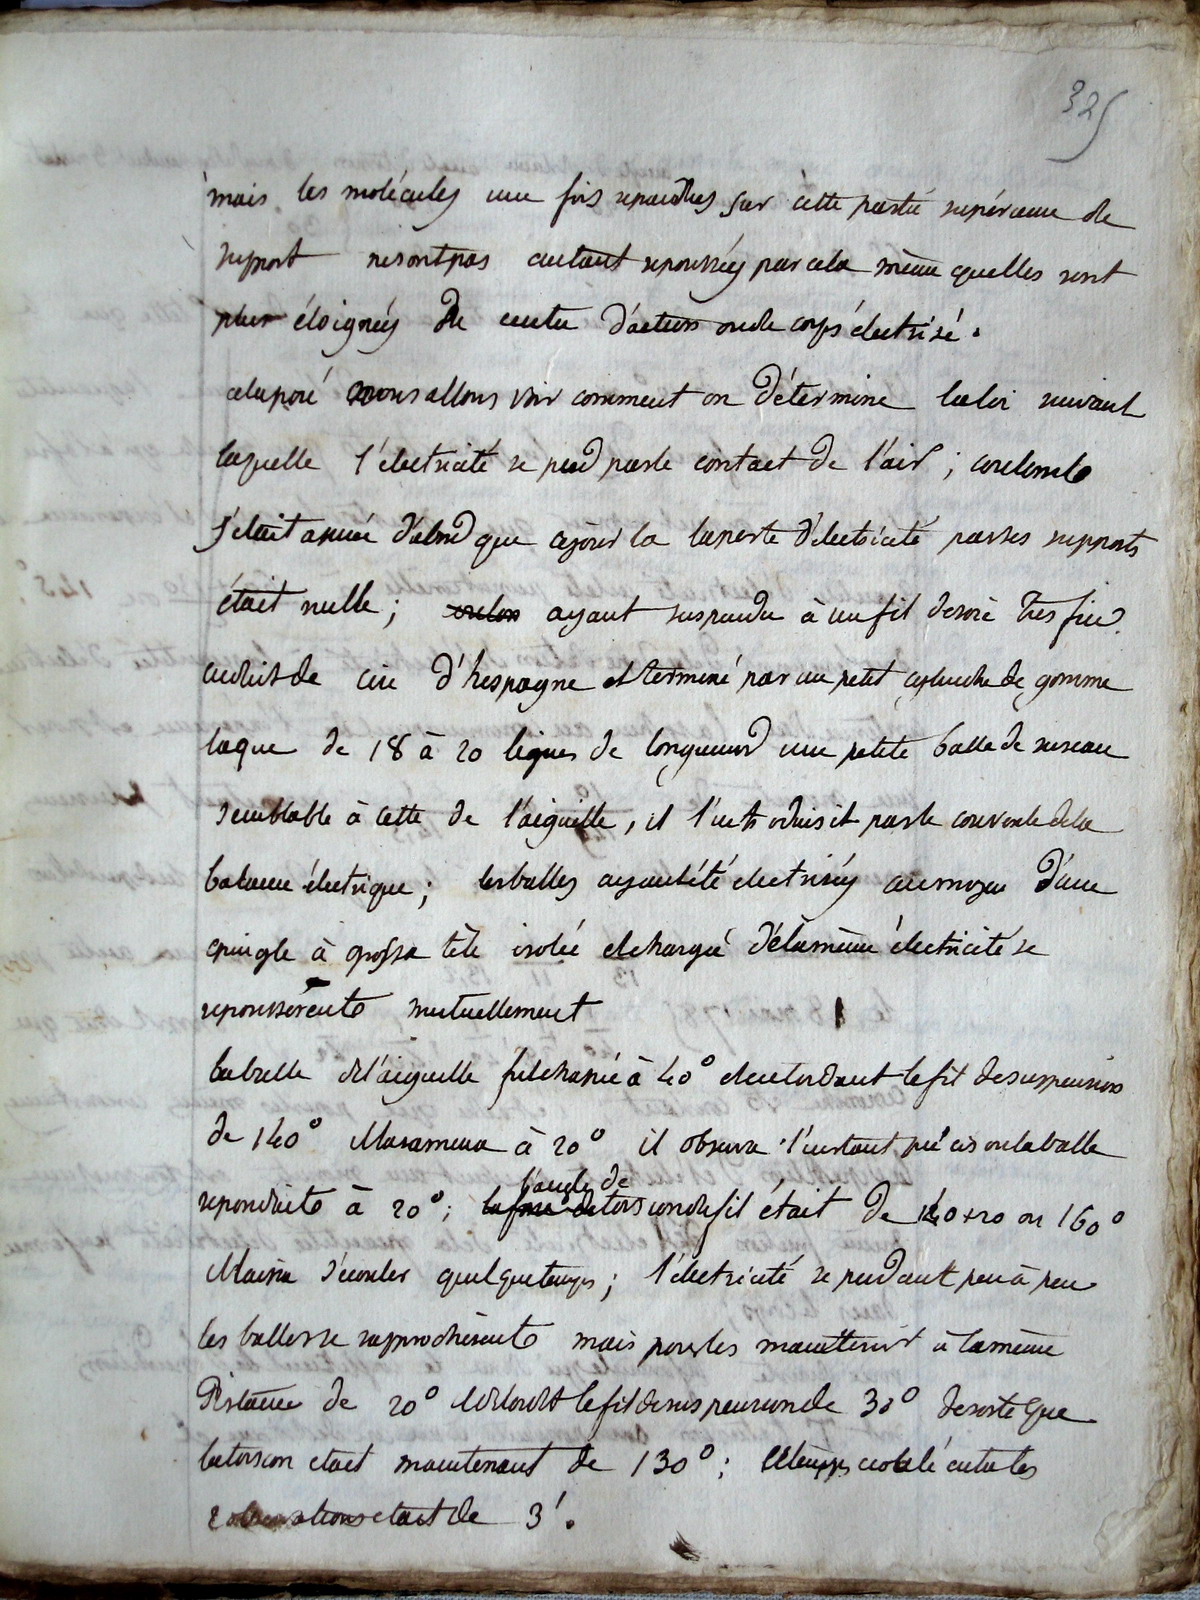 325
mais les molécules une fois repandues sur cette partie supérieure de
support ne sont pas autant repoussées par cela même quelles sont
plus éloignées du centre d'action ou de corps électrisé.
cela posé nous allons voir comment on détermine la loi suivant
laquelle l'électricité se perd par le contact de l'air ; coulomb
s'était assuré d'abord que ce jour la la perte d'électricité par ses supports
était nulle ; ayant suspendu à un fil de soie très fin
enduit de cire d'hespagne et terminé par un petit cylindre de gomme
laque de 18 à 20 lignes de longueur une petite balle de sureau
semblable à cette de l'aiguille, il l'introduisit par le couvercle de la
balance électrique ; les balles ayant été électrisées au moyen d'une
épingle à grosse tête isolée et chargée de la même électricité se
repoussèrent mutuellement
la balle de l'aiguille fut chassée à 40° et en tordant le fil de suspension
de 140° il la ramena à 20° il observa l'instant précis ou la balle
repondait à 20° ; l'angle de torsion du fil était de 140+20 ou 160°
Il laissa s'écouler quelque temps ; l'électricité se perdant peu à peu
les balles se rapprochèrent mais pour les maintenir à la même
Distance de 20° il détordit le fil de suspension de 30° de sorte que
la torsion était maintenant de 130° ; le temps écoulé entre les
2 observations était de 3'.